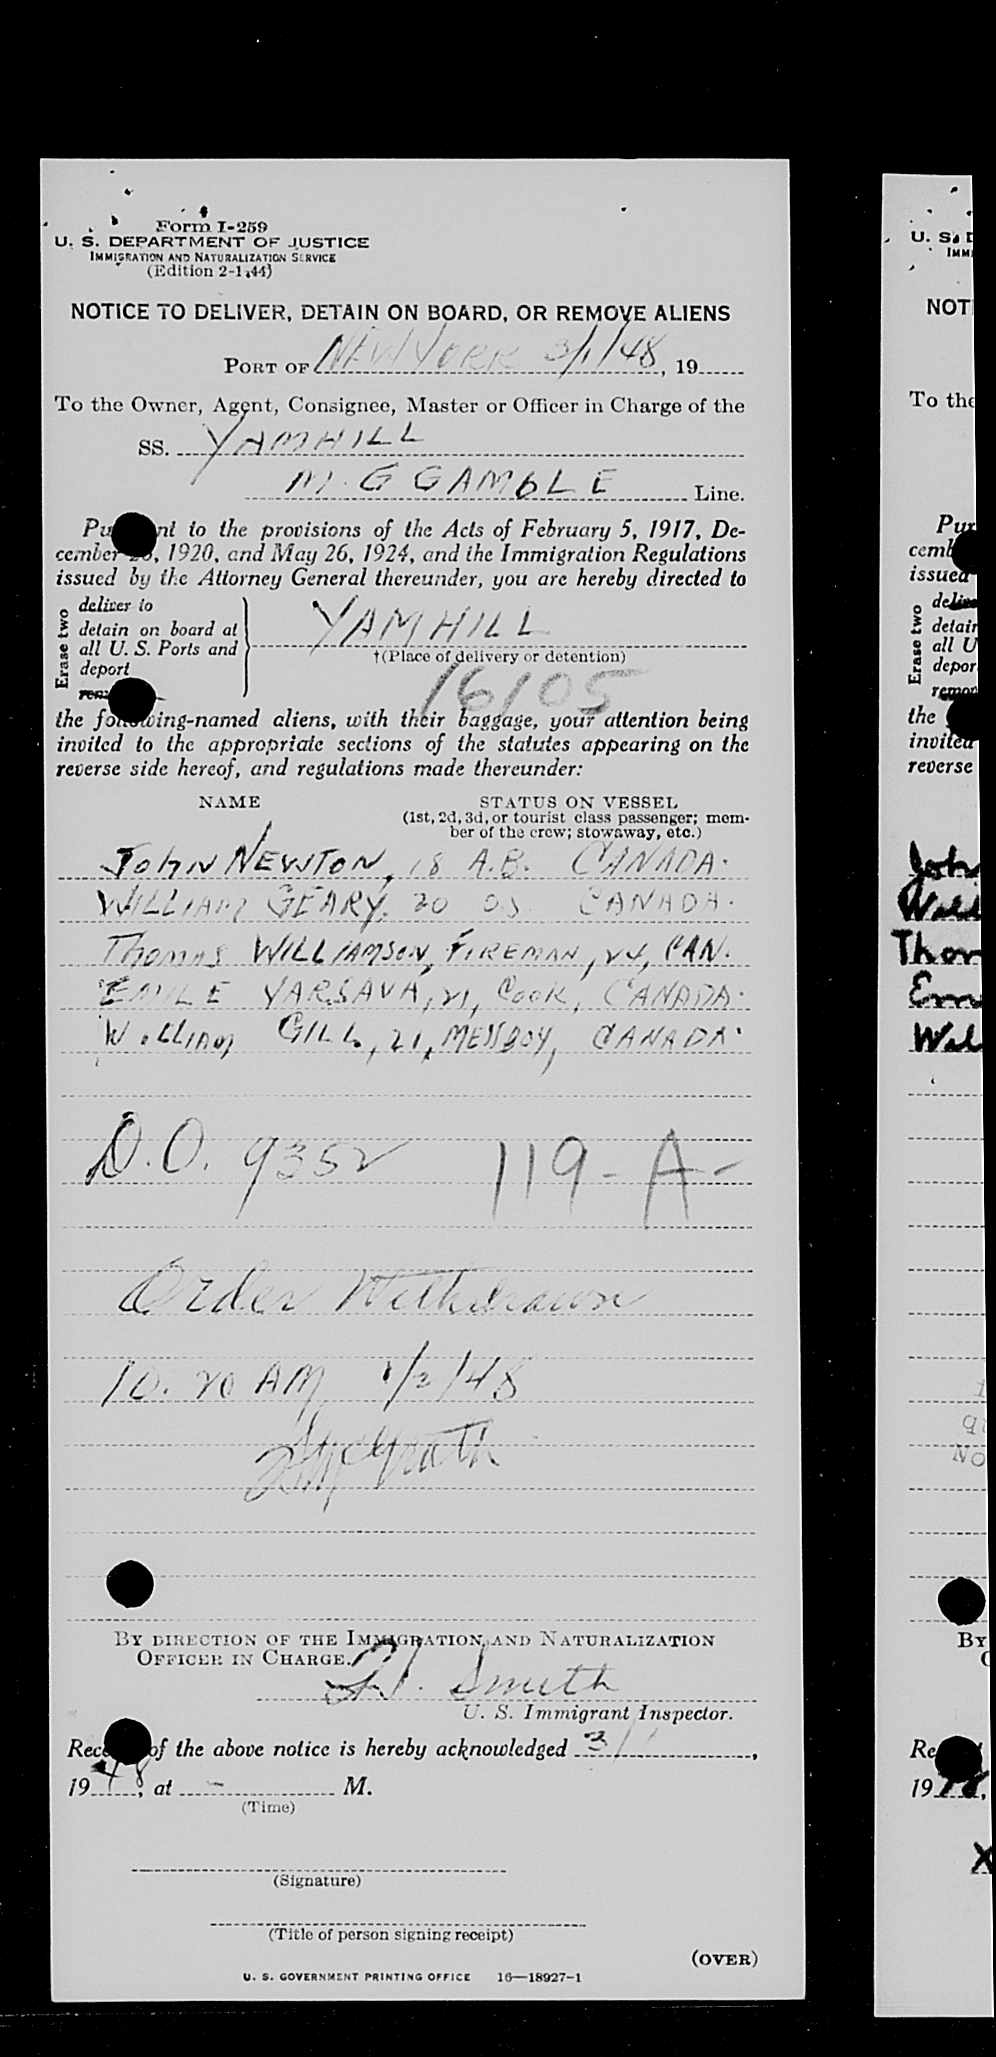 Form I-259
U. S. DEPARTMENT OF JUSTICE
IMMIGRATION AND NATURALIZATION SERVICE
(Edition 2-1-44)
NOTICE TO DELIVER, DETAIN ON BOARD, OR REMOVE ALIENS
PORT OF NEW YORK 3/1/48, 19
To the Owner, Agent, Consignee, Master or Officer in Charge of the
SS. YAMHILL
M. G GAMBLE Line.
Pu nt to the provisions of the Acts of February 5, 1917, De-
cember , 1920, and May 26, 1924, and the Immigration Regulations
issued by the Attorney General thereunder, you are hereby directed to
Erase two
deliver to
detain on board at
all U. S. Ports and
deport
YAMHILL
†(Place of delivery or detention)
16105
the following-named aliens, with their baggage, your attention being
invited to the appropriate sections of the statutes appearing on the
reverse side hereof, and regulations made thereunder:
NAME STATUS ON VESSEL
(1st, 2d, 3d, or tourist class passenger; mem-
ber of the crew; stowaway, etc.)
JOHN NEWTON, 18 A.B. CANADA.
WILLIAM GEARY, 20 OS CANADA.
Thomas WILLIAMSON, FIREMAN, 24, CAN.
EMILE YARSAVA, 21, COOK, CANADA.
WILLIAM GILL, 21, MESSBOY, CANADA.
D.O. 9352 119-A-
Order Withdrawn
10.20 AM 1/2/48
BY DIRECTION OF THE IMMIGRATION AND NATURALIZATION
OFFICER IN CHARGE.
Smith
U. S. Immigrant Inspector.
Rec of the above notice is hereby acknowledged 3/1,
1948, at - M.
(Time)
(Signature)
(Title of person signing receipt)
(OVER)
U. S. GOVERNMENT PRINTING OFFICE 16—18927-1